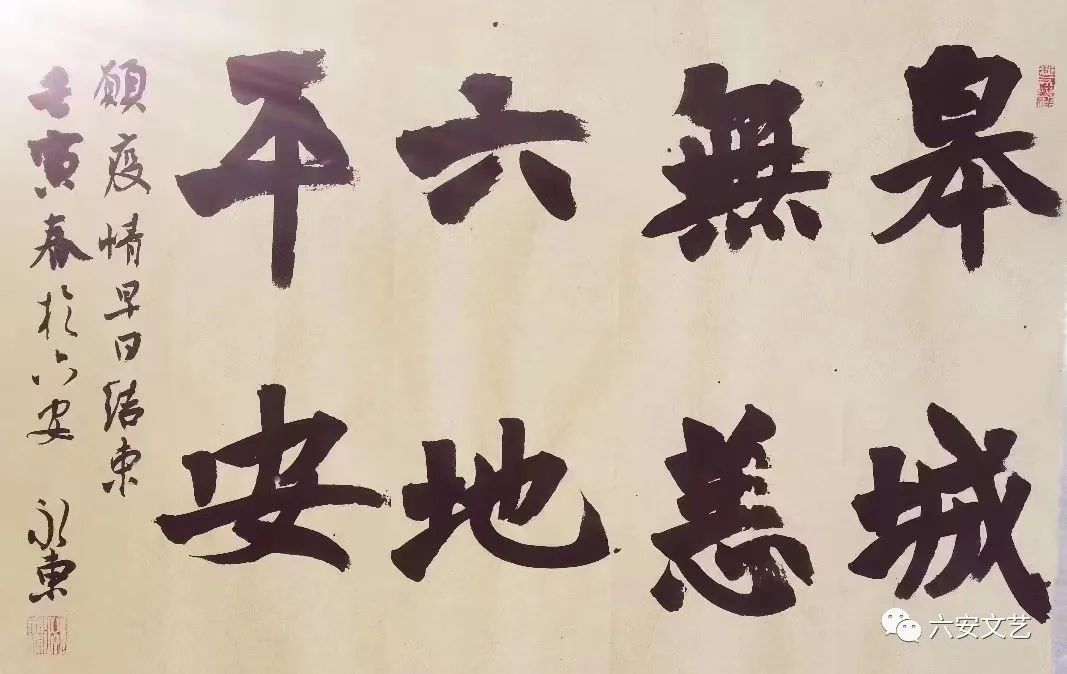 皋城
無恙
六地
平安
願疫情早日结束
壬寅春於六安 永東
六安文艺